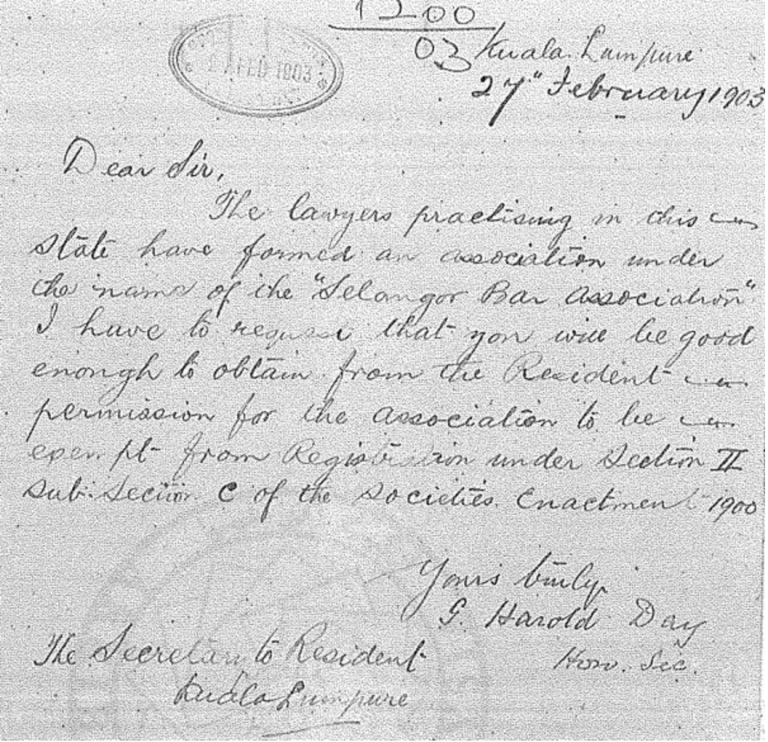 1200
03
FEB 1903
Kuala Lumpure
27" February 1903
Dear Sir,
The lawyers practising in this
state have formed an association under
the name of the "Selangor Bar Association"
I have to request that you will be good
enough to obtain from the Resident
permission for the association to be
exempt from Registration under Section II
sub-section C of the Societies Enactment 1900
Yours truly
G. Harold Day
Hon. Sec.
The Secretary to Resident
Kuala Lumpure